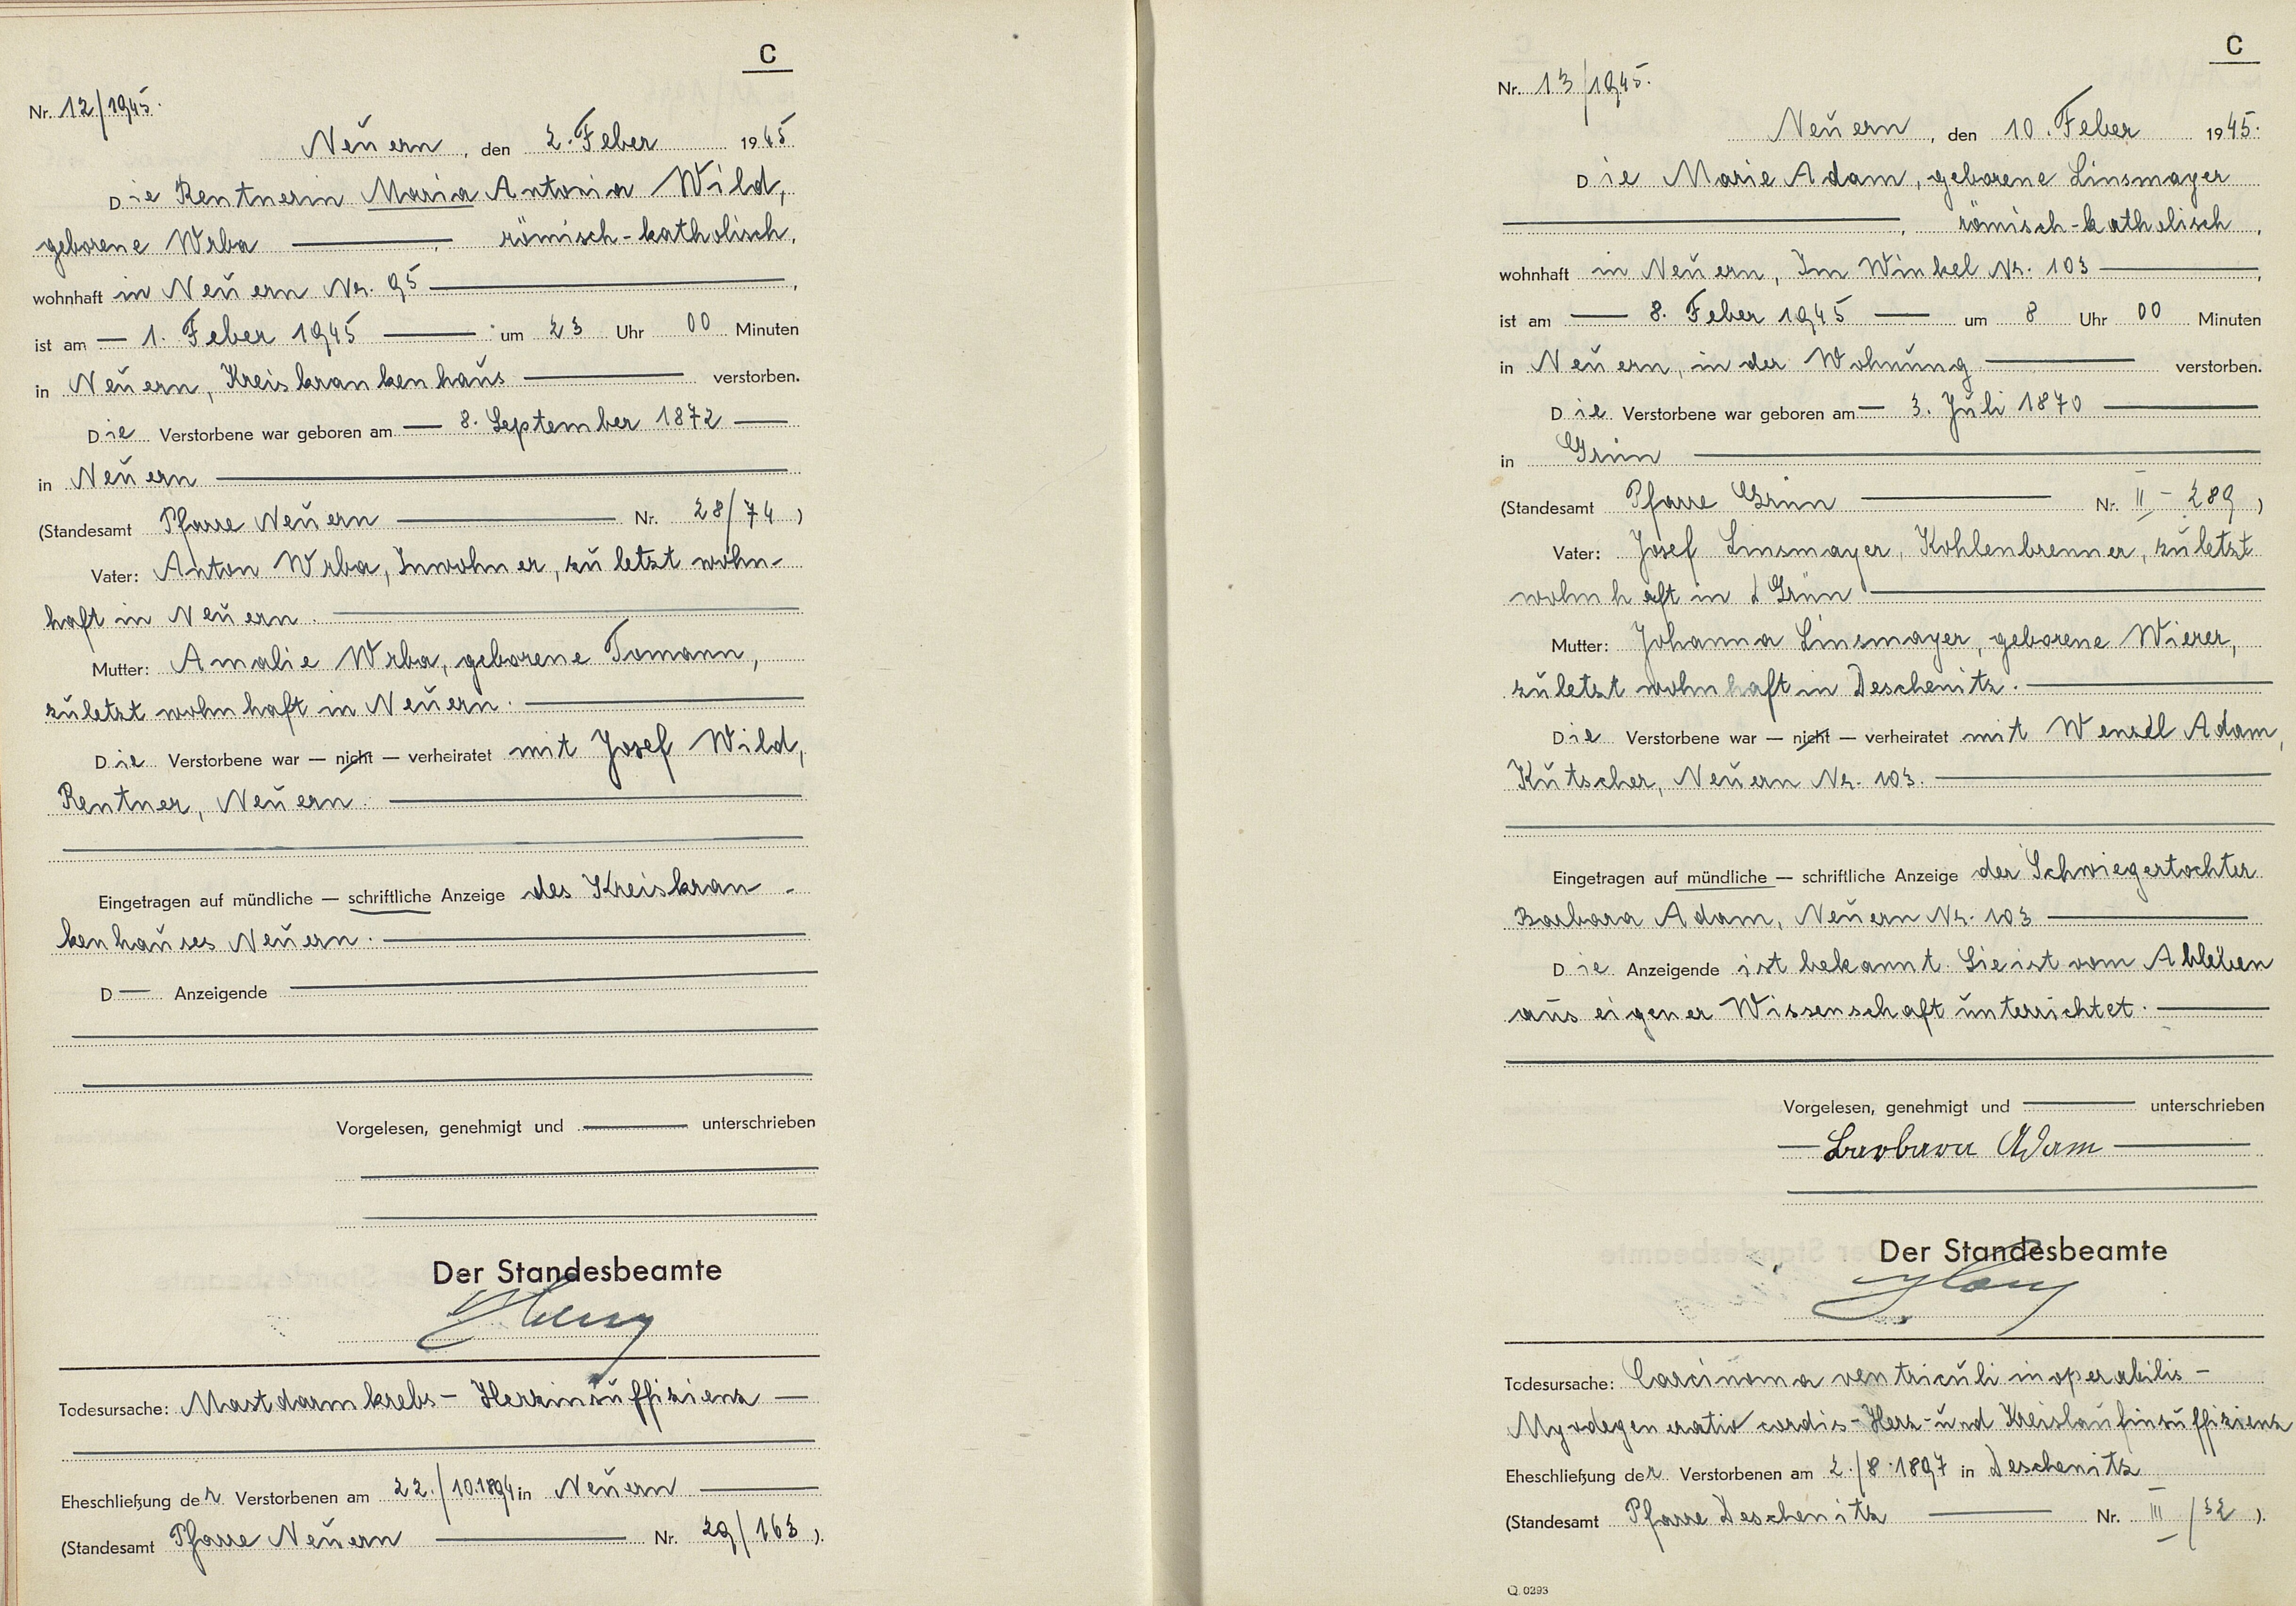 C
Nr. 12/1945.
Neuern, den 2. Feber 1945
Die Rentnerin Maria Antonia Wild,
geborene Wrba, römisch-katholisch,
wohnhaft in Neuern Nr. 95,
ist am 1. Feber 1945 um 23 Uhr 00 Minuten
in Neuern, Kreiskrankenhaus verstorben.
Die Verstorbene war geboren am 8. September 1872
in Neuern
(Standesamt Pfarre Neuern Nr. 28/74)
Vater: Anton Wrba, Inwohner, zuletzt wohn-
haft in Neuern.
Mutter: Amalie Wrba, geborene Tomann,
zuletzt wohnhaft in Neuern.
Die Verstorbene war — nicht — verheiratet mit Josef Wild,
Rentner, Neuern.
Eingetragen auf mündliche — schriftliche Anzeige des Kreiskran-
kenhauses Neuern.
D— Anzeigende
Vorgelesen, genehmigt und unterschrieben
Der Standesbeamte
Todesursache: Mastdarmkrebs - Herzinsuffizienz
Eheschließung der Verstorbenen am 22./10.1894 in Neuern
(Standesamt Pfarre Neuern Nr. 29/163).
C
Nr. 13/1945.
Neuern, den 10. Feber 1945.
Die Marie Adam, geborene Linsmayer
, römisch-katholisch,
wohnhaft in Neuern, Im Winkel Nr. 103,
ist am 8. Feber 1945 um 8 Uhr 00 Minuten
in Neuern, in der Wohnung verstorben.
Die Verstorbene war geboren am 3. Juli 1870
in Grün
(Standesamt Pfarre Grün Nr. II - 289)
Vater: Josef Linsmayer, Kohlenbrenner, zuletzt
wohnhaft in Grün
Mutter: Johanna Linsmayer, geborene Wierer,
zuletzt wohnhaft in Deschenitz.
Die Verstorbene war — nicht — verheiratet mit Wenzl Adam,
Kutscher, Neuern Nr. 103.
Eingetragen auf mündliche — schriftliche Anzeige der Schwiegertochter
Barbara Adam, Neuern Nr. 103
Die Anzeigende ist bekannt. Sie ist vom Ableben
aus eigener Wissenschaft unterrichtet.
Vorgelesen, genehmigt und unterschrieben
Barbara Adam
Der Standesbeamte
Todesursache: Carcinoma ventriculi inoperabilis -
Myodegeneratio cordis - Herz- und Kreislaufinsuffizienz
Eheschließung der Verstorbenen am 2./8.1897 in Deschenitz
(Standesamt Pfarre Deschenitz Nr. III/32).
Q. 0293